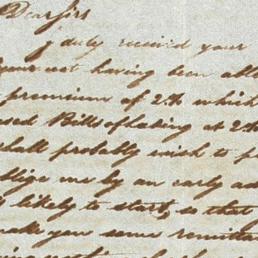 Dear Sirs
I duly received your
your not having been able
premiums of 2.% which
Bills of lading at 2%
shall probably wish to
oblige me by an early
likely to start, so that
make you some remittan